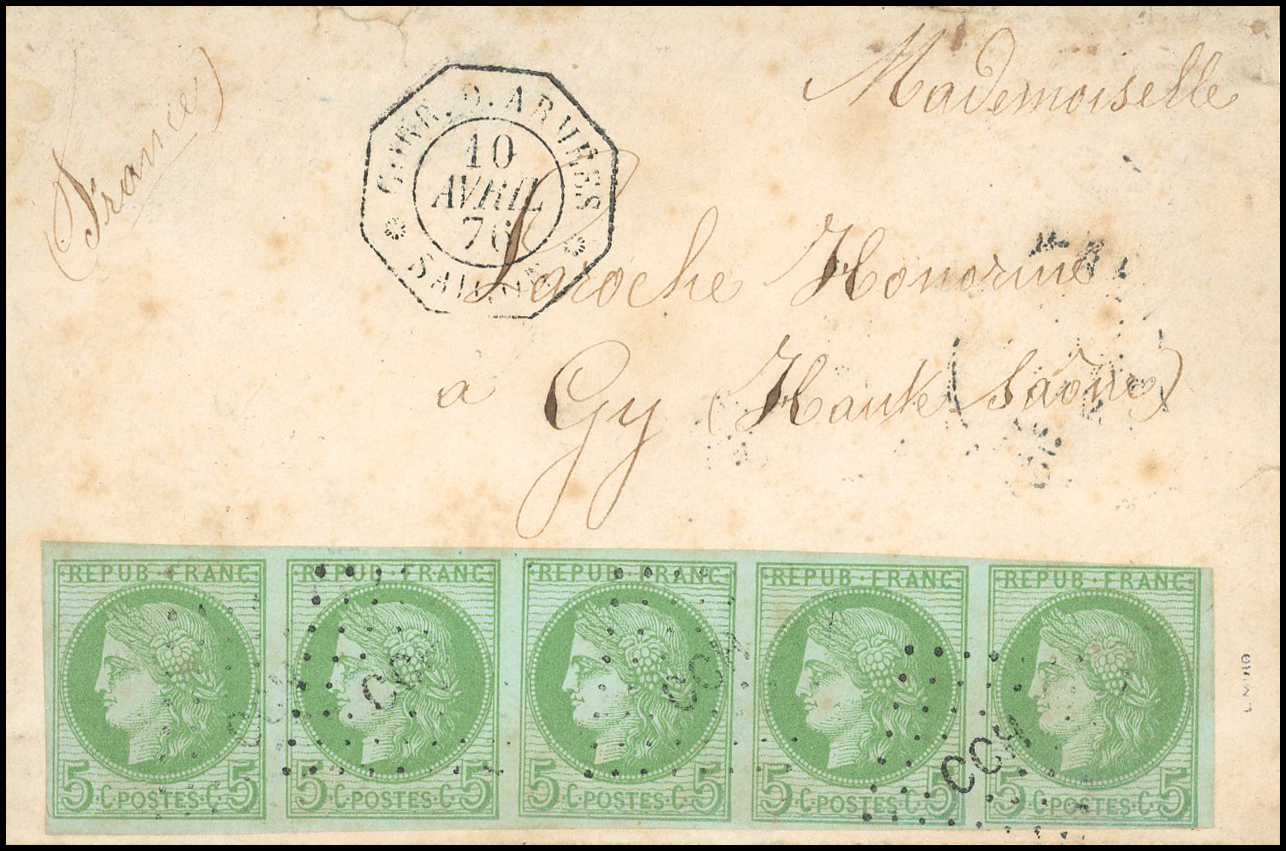 (France)
Mademoiselle
CORR. D. ARMÉES
10
AVRIL
76
SAIGON
Laroche Honorine
à Gy (Haute Saône)
REPUB · FRANC REPUB · FRANC REPUB · FRANC REPUB · FRANC REPUB · FRANC
CCH CCH CCH
5 C · POSTES · C 5 5 C · POSTES · C 5 5 C · POSTES · C 5 5 C · POSTES · C 5 5 C · POSTES · C 5